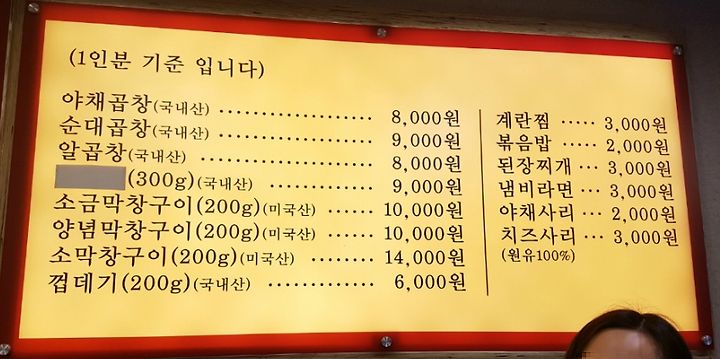 (1인분 기준 입니다)
야채곱창(국내산) ···················· 8,000원
순대곱창(국내산) ···················· 9,000원
알곱창(국내산) ······················ 8,000원
(300g)(국내산) ·················· 9,000원
소금막창구이(200g)(미국산) ······ 10,000원
양념막창구이(200g)(미국산) ······ 10,000원
소막창구이(200g)(미국산) ········ 14,000원
껍데기(200g)(국내산) ·············· 6,000원
계란찜 ····· 3,000원
볶음밥 ····· 2,000원
된장찌개 ··· 3,000원
냄비라면 ··· 3,000원
야채사리 ··· 2,000원
치즈사리 ··· 3,000원
(원유100%)